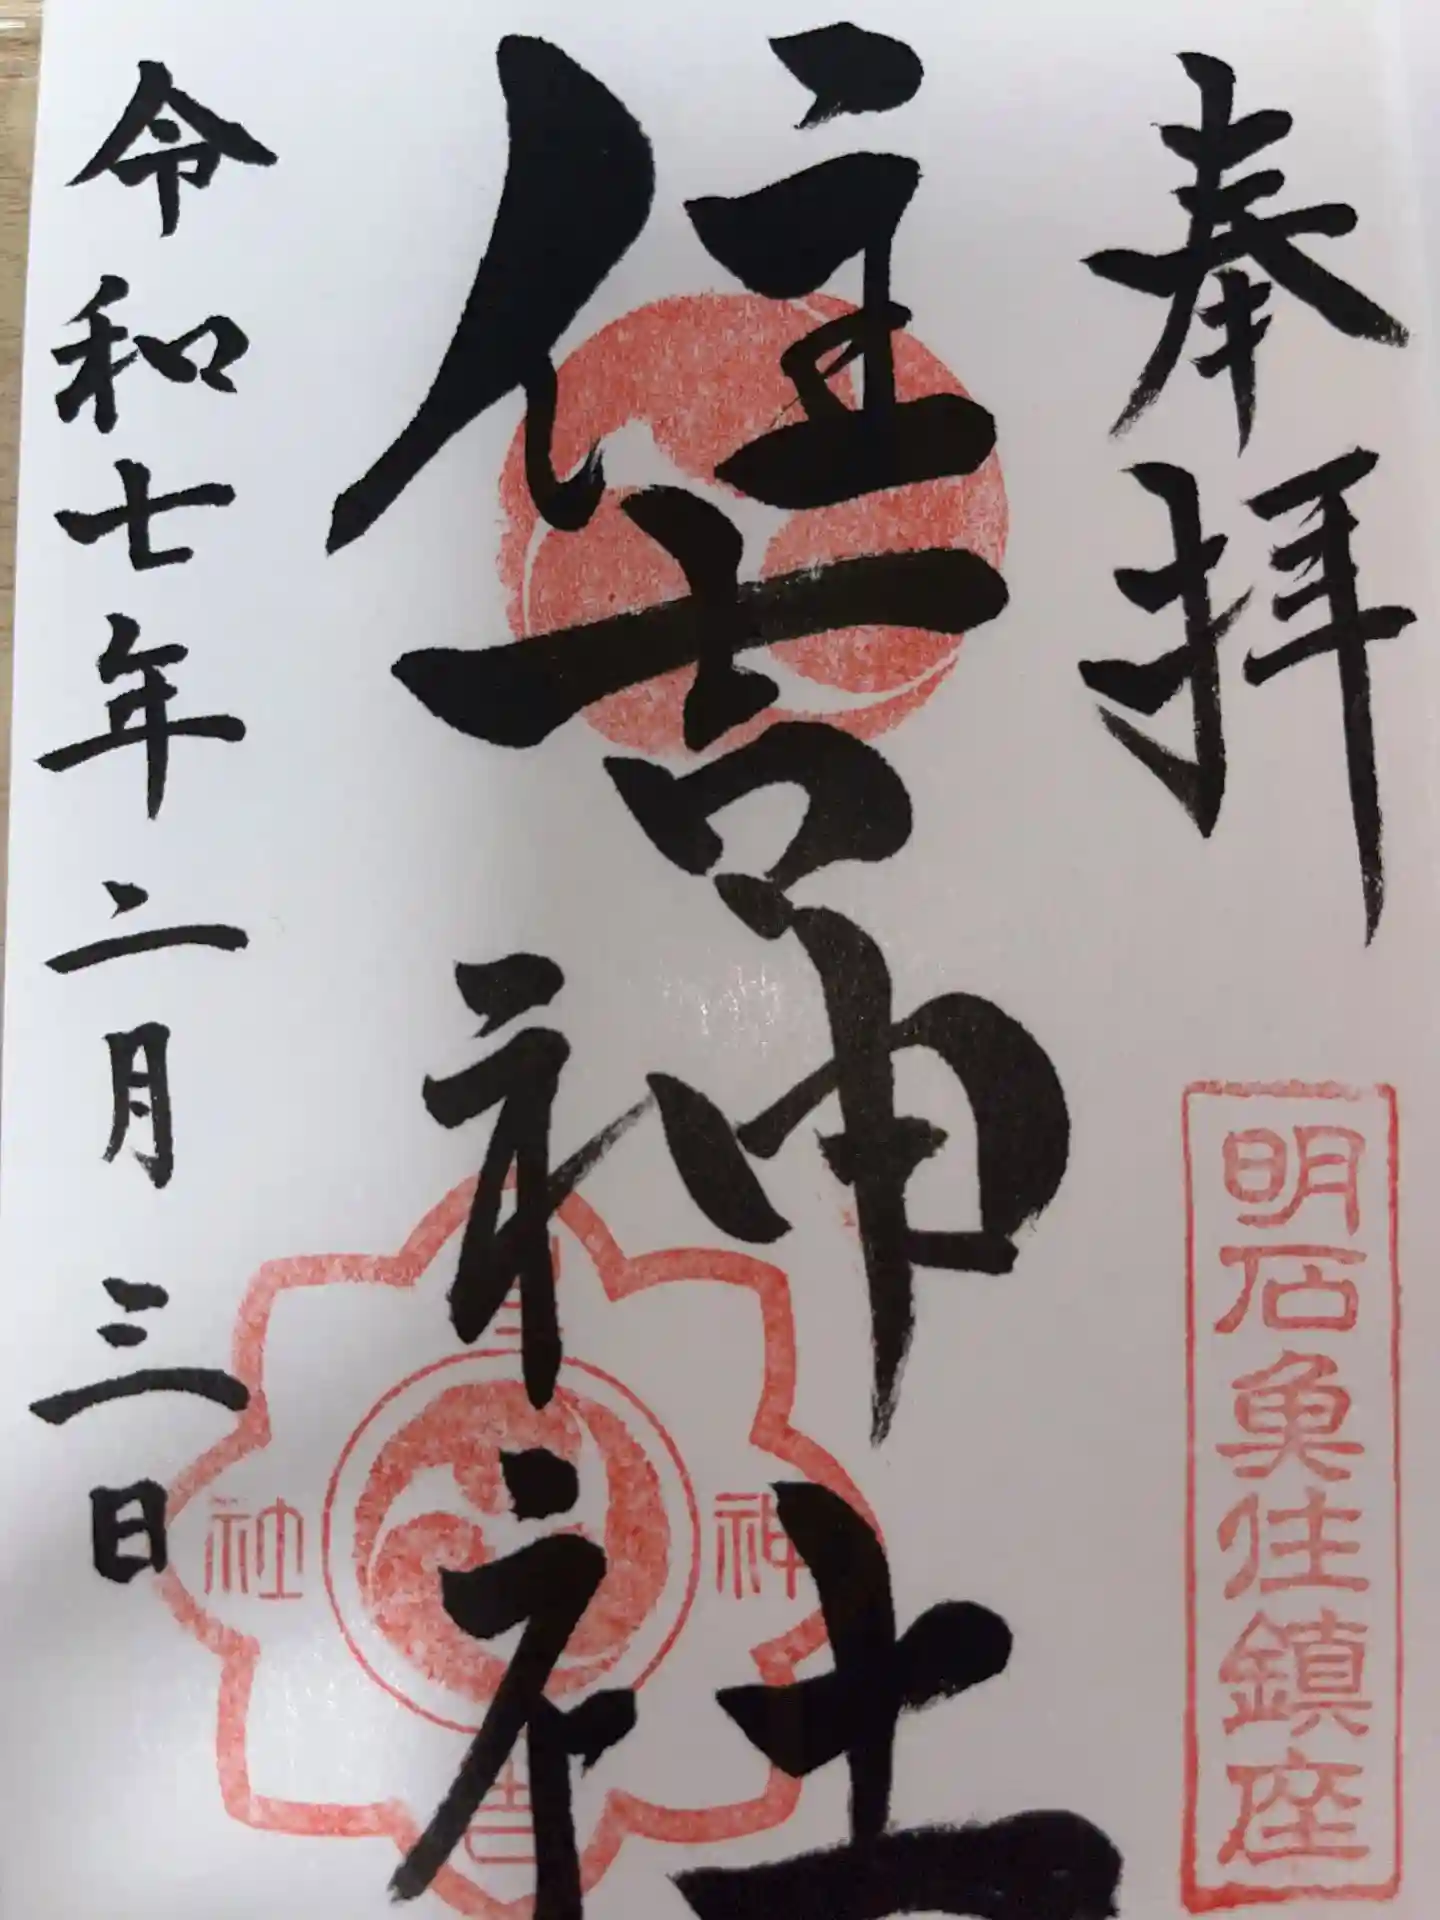 奉拝
明石魚住鎮座
住吉神社
住吉神社
令和七年二月三日